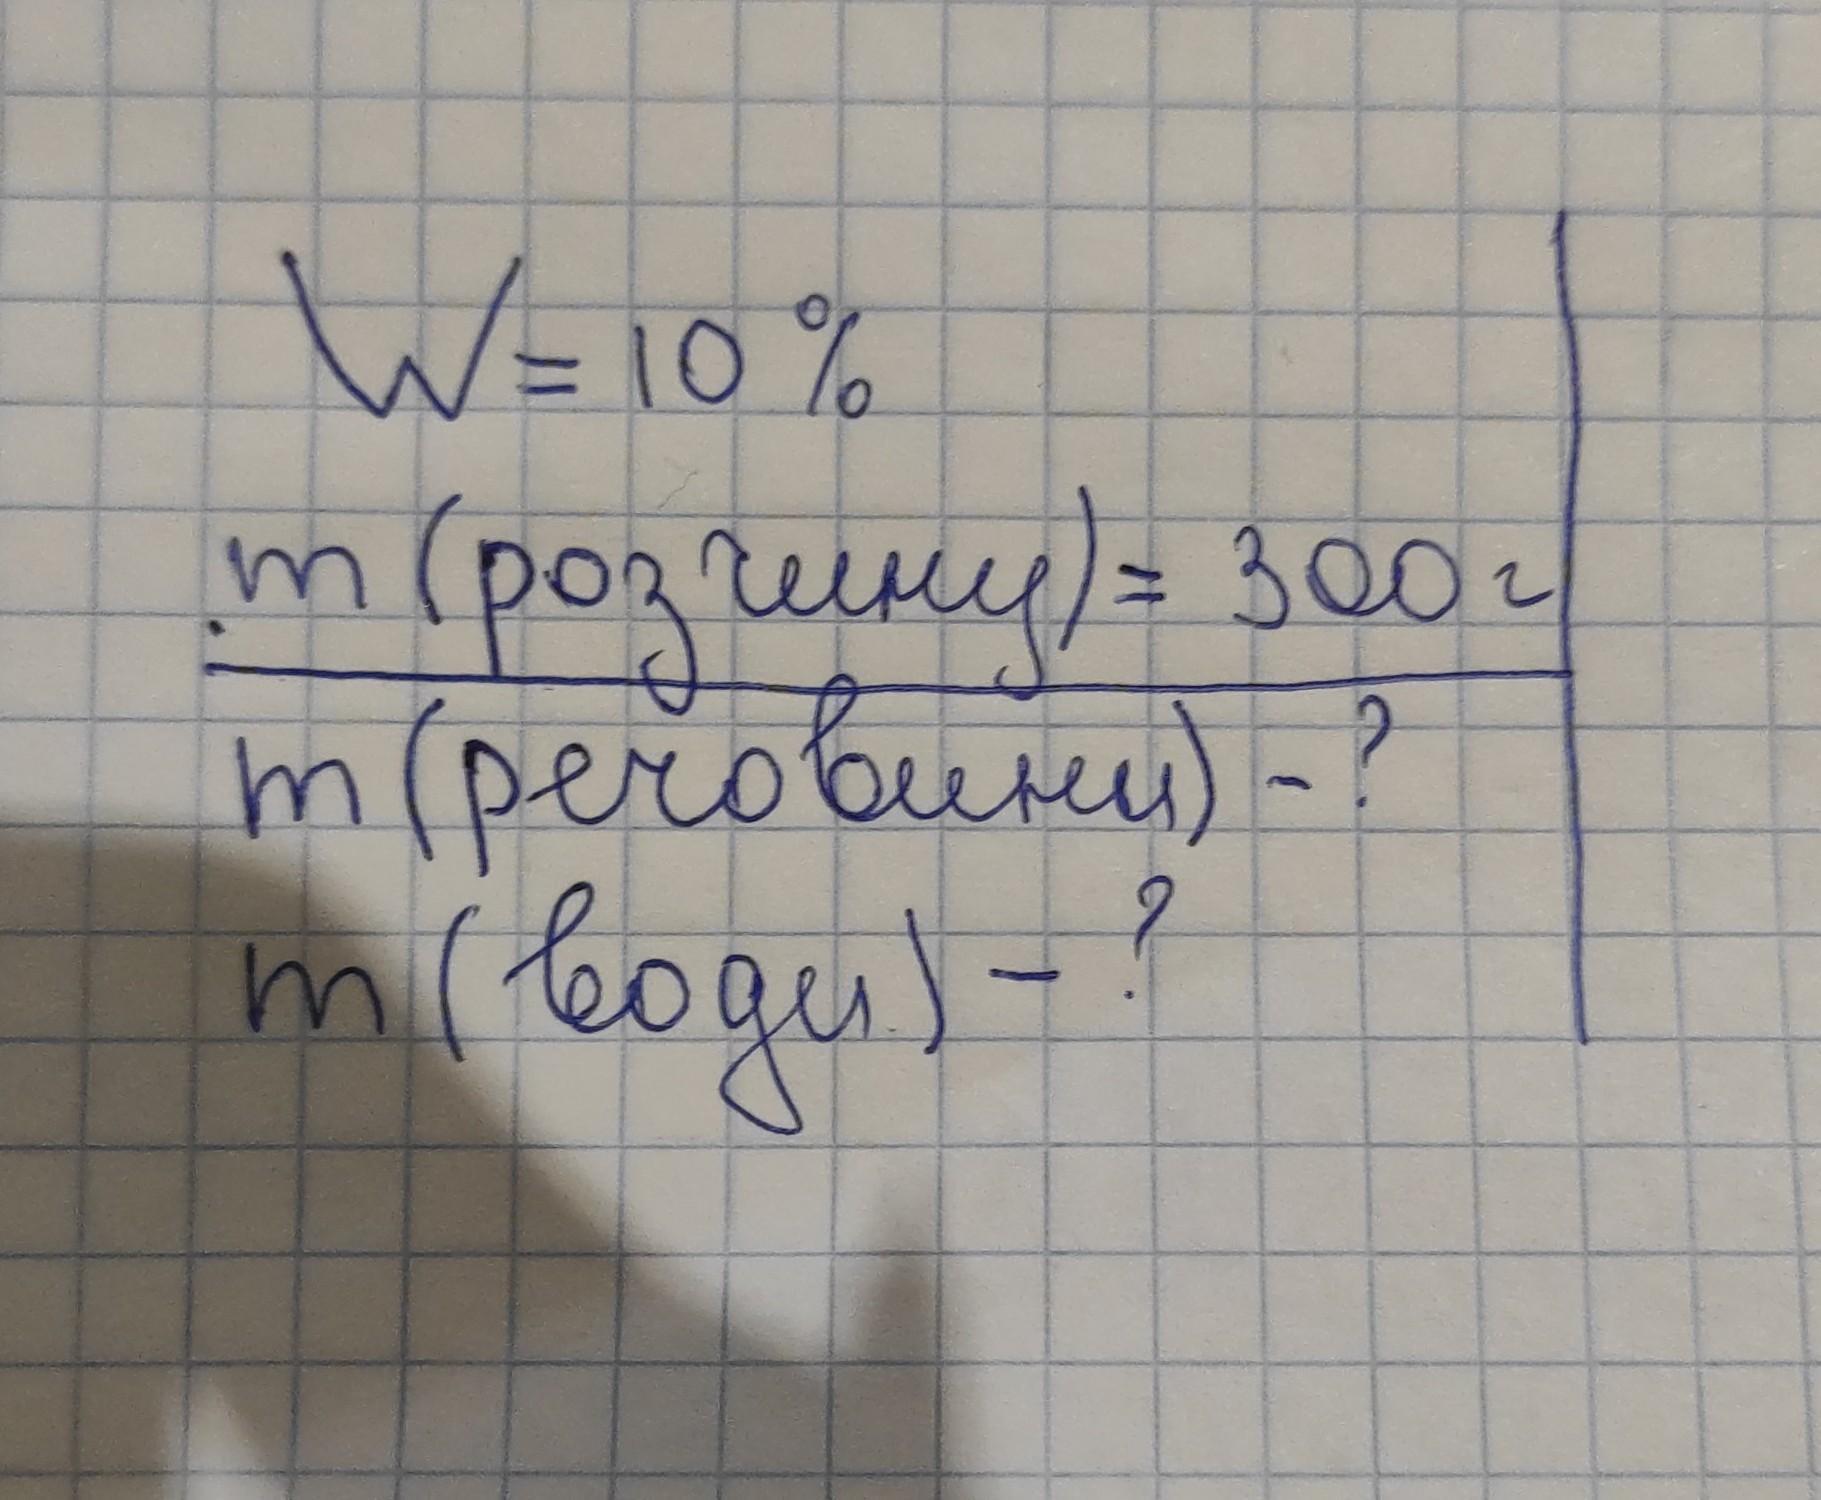 W = 10 %
m (розчину) = 300 г
m (речовини) - ?
m (води) - ?